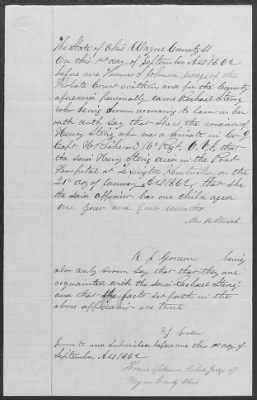 The State of Ohio Wayne County SS
On this 1st day of September A.D. 1862
before me Thomas S Johnson judge of the
Probate Court within and for the County
aforesaid personally came Rachael Steng
who being sworn according to Law on her
oath doth say that she is the widow of
Henry Steng who was a private in Co C
Capt 16th Regt O.V.I. that
the said Henry Steng died in the Post
Hospital at Lexington Kentucky on the
21st day of January A.D. 1862, that she
the said affiant has one child aged
one year and four months

R J being
also duly sworn say that that they are
acquainted with the said Rachael Steng
and that the facts set forth in the
above affidavit are true
R J
Sworn to and Subscribed before me this 1st day of
September A.D. 1862
Thomas Johnson Probate Judge of
Wayne County Ohio